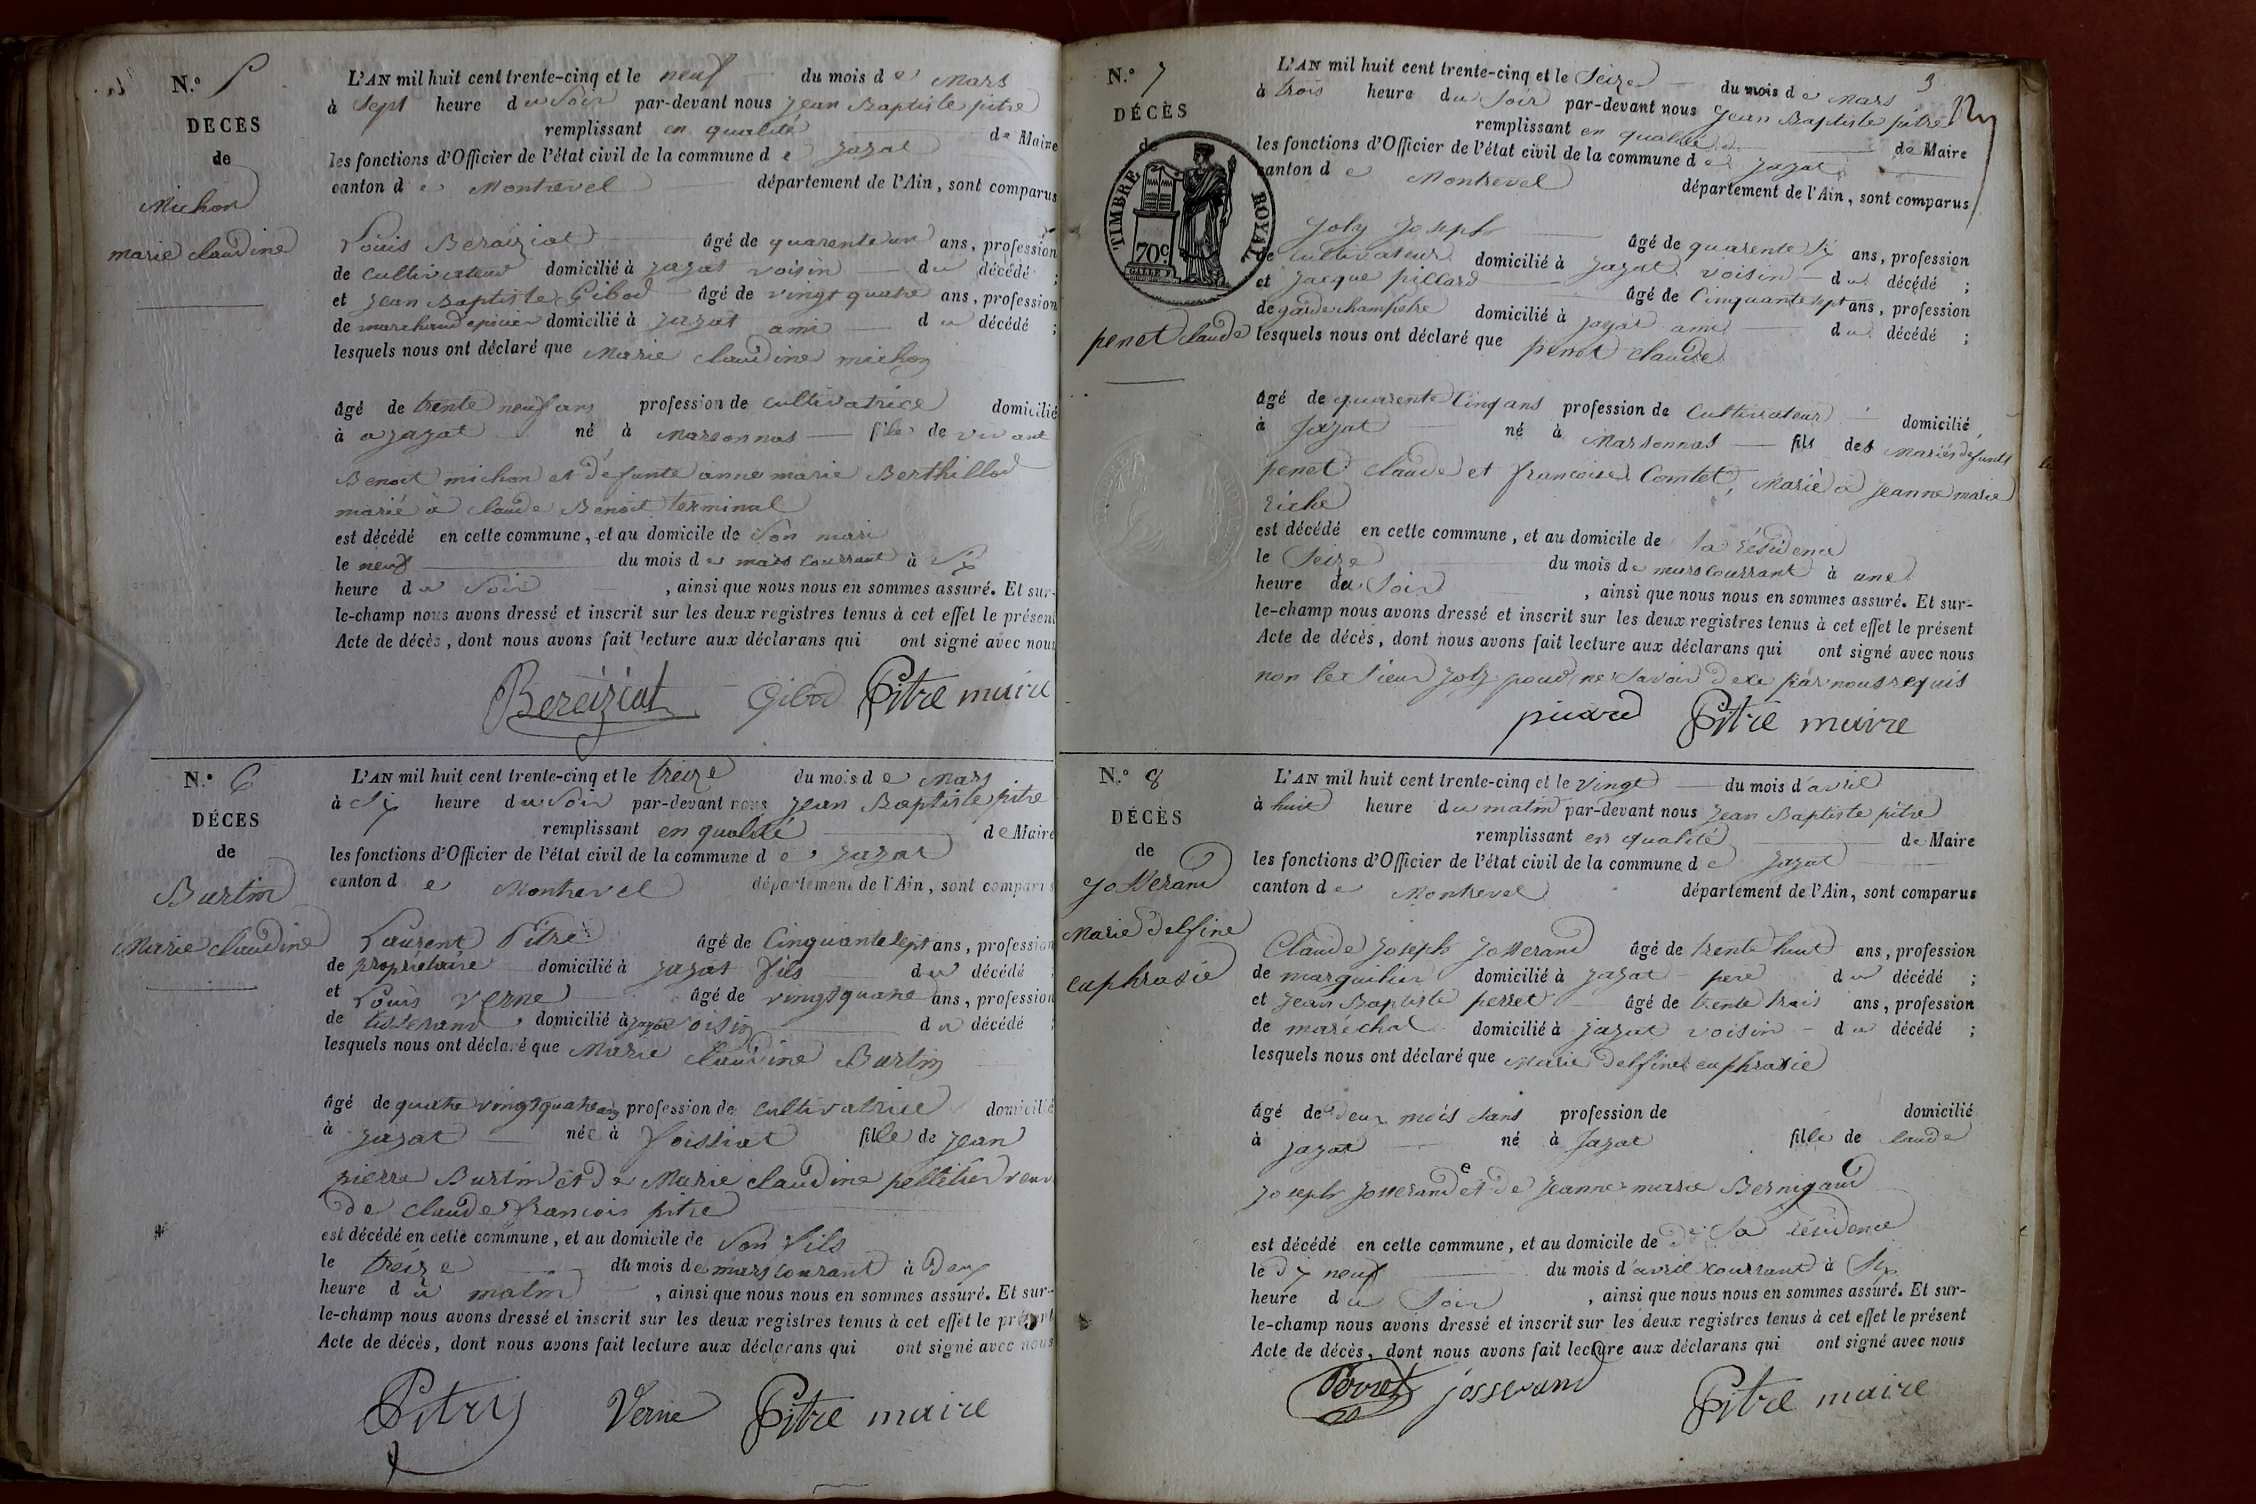 N.o 5
DÉCÈS
de
Michon
marie claudine
L'AN mil huit cent trente-cinq et le neuf du mois de Mars
à Sept heure du Soir par-devant nous Jean Baptiste pitre
remplissant en qualité de Maire
les fonctions d'Officier de l'état civil de la commune de Jayat
canton de Montrevel département de l'Ain, sont comparus
Louis Bereiziat âgé de quarente un ans, profession
de cultivateur domicilié à Jayat voisin du décédé ;
et Jean Baptiste Gibod âgé de vingt quatre ans, profession
de marchand epicier domicilié à Jayat ami du décédé ;
lesquels nous ont déclaré que Marie claudine michon
âgé de trente neuf ans profession de cultivatrice domicilié
à a Jayat né à Marsonnas fille de vivant
Benoit michon et défunte anne marie Berthillod
marié à claude Benoit terminal
est décédé en cette commune, et au domicile de Son mari
le neuf du mois de mars courrant à Six
heure du Soir , ainsi que nous nous en sommes assuré. Et sur-
le-champ nous avons dressé et inscrit sur les deux registres tenus à cet effet le présent
Acte de décès, dont nous avons fait lecture aux déclarans qui ont signé avec nous
Bereiziat Gibod Pitre maire
N.o 6
DÉCES
de
Burtin
Marie claudine
L'AN mil huit cent trente-cinq et le treize du mois de Mars
à Six heure du Soir par-devant nous Jean Baptiste pitre
remplissant en qualité de Maire
les fonctions d'Officier de l'état civil de la commune de Jayat
canton de Montrevel département de l'Ain, sont comparus
Laurent Pitre âgé de Cinquante Sept ans, profession
de propriétaire domicilié à Jayat fils du décédé
et Louis Verne âgé de vingt quatre ans, profession
de tisserand domicilié à Jayat voisin du décédé
lesquels nous ont déclaré que Marie claudine Burtin
âgé de quatre vingt quatre ans profession de cultivatrice domicilié
à Jayat née à foissiat fille de Jean
pierre Burtin et de Marie claudine pelletier veuve
de claude francois pitre
est décédé en cette commune, et au domicile de Son fils
le treize du mois de mars courant à Deux
heure du matin , ainsi que nous nous en sommes assuré. Et sur-
le-champ nous avons dressé et inscrit sur les deux registres tenus à cet effet le présent
Acte de décès, dont nous avons fait lecture aux déclarans qui ont signé avec nous
Verne Pitre maire
3
N.o 7
DÉCÈS
de
TIMBRE ROYAL
70c
penet claude
L'AN mil huit cent trente-cinq et le Seize du mois de Mars
à trois heure du Soir par-devant nous Jean Baptiste pitre
remplissant en qualité de Maire
les fonctions d'Officier de l'état civil de la commune de Jayat
canton de Montrevel département de l'Ain, sont comparus
Joly Joseph âgé de quarente Six ans, profession
de Cultivateur domicilié à Jayat voisin du décédé ;
et Jacque pillard âgé de Cinquante sept ans, profession
de garde champetre domicilié à Jayat ami du décédé ;
lesquels nous ont déclaré que penet claude
âgé de quarente Cinq ans profession de Cultivateur domicilié
à Jayat né à Marsonnas fils des Mariés défunts
penet claude et francoise Comtet, Marié à Jeanne marie
riche
est décédé en cette commune, et au domicile de Sa résidence
le Seize du mois de mars courrant à une
heure du Soir , ainsi que nous nous en sommes assuré. Et sur-
le-champ nous avons dressé et inscrit sur les deux registres tenus à cet effet le présent
Acte de décès, dont nous avons fait lecture aux déclarans qui ont signé avec nous
non le Sieur Joly pour ne Savoir de ce par nous requis
Pitre maire
N.o 8
DÉCÈS
de
Josserand
Marie Delfine
euphrasie
L'AN mil huit cent trente-cinq et le Vingt du mois d'avril
à huit heure du matin par-devant nous Jean Baptiste pitre
remplissant en qualité de Maire
les fonctions d'Officier de l'état civil de la commune de Jayat
canton de Montrevel département de l'Ain, sont comparus
Claude Joseph Josserand âgé de trente huit ans, profession
de marguilier domicilié à Jayat pere du décédé ;
et Jean Baptiste perret âgé de trente trais ans, profession
de maréchal domicilié à Jayat voisin du décédé ;
lesquels nous ont déclaré que Marie Delfine euphrasie
âgé de Deux mois Sans profession de domicilié
à Jayat né à Jayat fille de claude
Joseph Josserand et de Jeanne marie Bernigaud
est décédé en cette commune, et au domicile de De Sa résidence
le Dix neuf du mois d'avril courrant à Six
heure du Soir , ainsi que nous nous en sommes assuré. Et sur-
le-champ nous avons dressé et inscrit sur les deux registres tenus à cet effet le présent
Acte de décès, dont nous avons fait lecture aux déclarans qui ont signé avec nous
Perret josserand Pitre maire